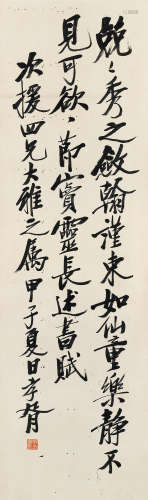 兢兢秀之敛翰謹束如仙重樂静不
見可欲節竇靈長述書賦
次援四兄大雅之屬甲子夏日孝胥